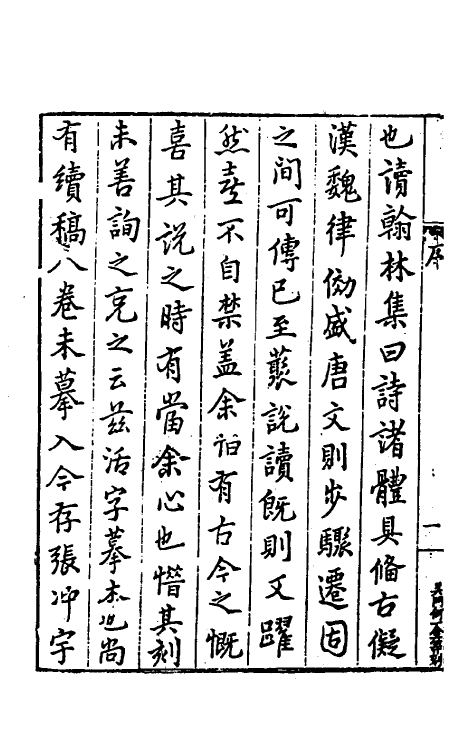 也讀翰林集曰詩諸體具備古儗
漢魏律俲盛唐文則步驟遷固
之間可傳已至叢說讀既則又躍
然喜不自禁蓋余怕有古今之慨
喜其說之時有當余心也惜其刻
未善詢之克之云茲活字摹本也尚
有續稿八卷未摹入今存張沖宇
序
一